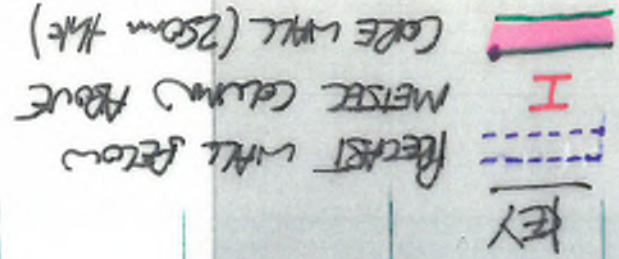 KEY
PRECAST WALL BELOW
METSEC COLUMN ABOVE
CORE WALL (250mm thk)